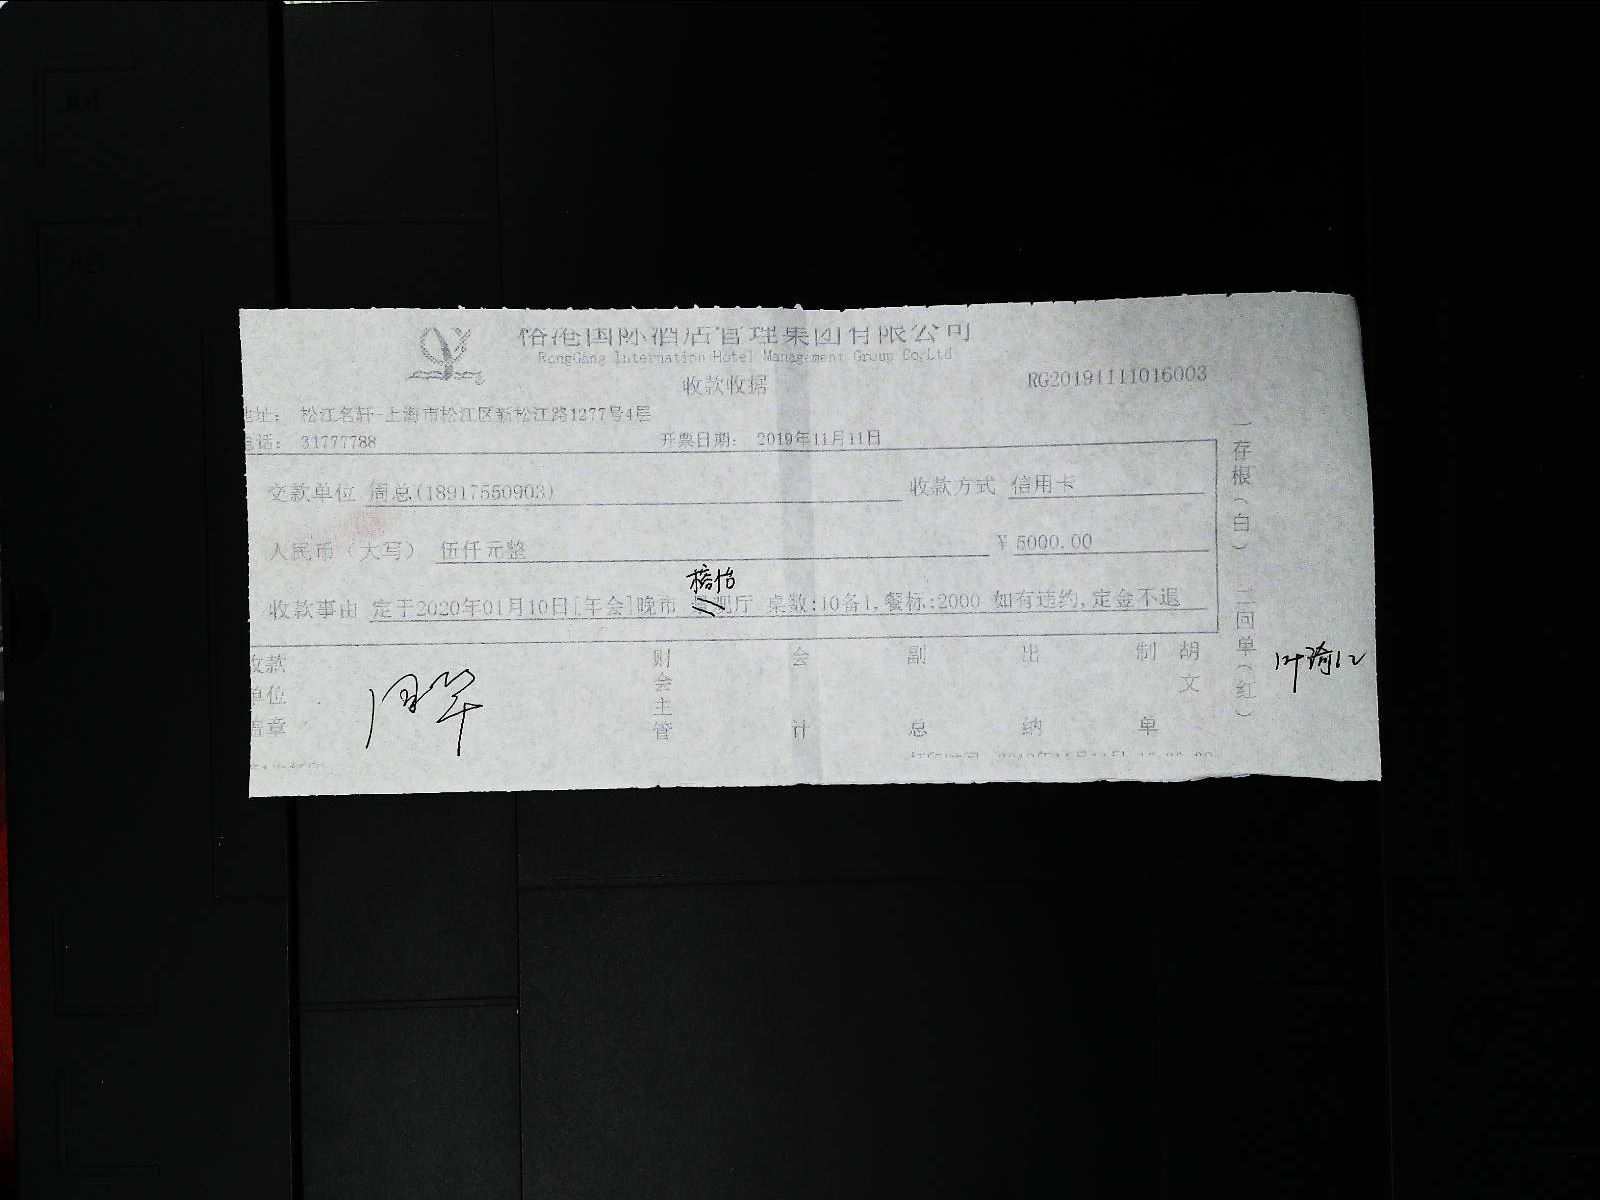 榕港国际酒店管理集团有限公司
RongGang Internation Hotel Management Group Co,Ltd
收款收据
RG20191111016003
地址： 松江名轩-上海市松江区新松江路1277号4层
电话： 31777788 开票日期： 2019年11月11日
交款单位 周总(18917550903) 收款方式 信用卡
人民币（大写） 伍仟元整 ￥5000.00
榕怡
收款事由 定于2020年01月10日[年会]晚市 观厅 桌数:10备1,餐标:2000 如有违约,定金不退
收款单位盖章 财会主管 会计 副总 出纳 制单 胡文
一存根（白） 二回单（红）